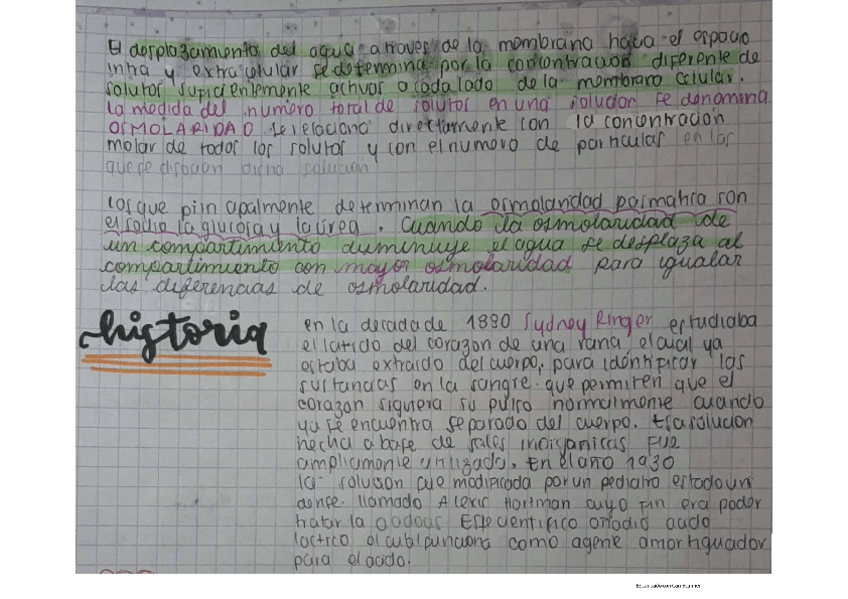 El desplazamiento del agua a traves de la membrana hacia el espacio
intra y extracelular se determina por la concentracion diferente de
solutos suficientemente activos a cada lado de la membrana celular.
la medida del numero total de solutos en una solucion se denomina
OSMOLARIDAD se relaciona directamente con la concentración
molar de todos los solutos y con el numero de particulas en las
que se disocian dicha solucion
los que principalmente determinan la osmolaridad plasmatica son
el sodio la glucosa y la urea. Cuando la osmolaridad de
un compartimiento disminuye el agua se desplaza al
compartimiento con mayor osmolaridad para igualar
las diferencias de osmolaridad.
historia
en la decada de 1880 Sydney Ringer estudiaba
el latido del corazon de una rana el cual ya
estaba extraido del cuerpo, para identificar las
sustancias en la sangre que permiten que el
corazon siguiera su pulso normalmente cuando
ya se encuentra separado del cuerpo. Esa solucion
hecha a base de sales inorganicas fue
ampliamente utilizado. En el año 1930
la solucion fue modificada por un pediatra estadouni
dense llamado Alexis Hartman cuyo fin era poder
tratar la acidosis Este cientifico añadio acido
lactico el cual funciona como agente amortiguador
para el acido.